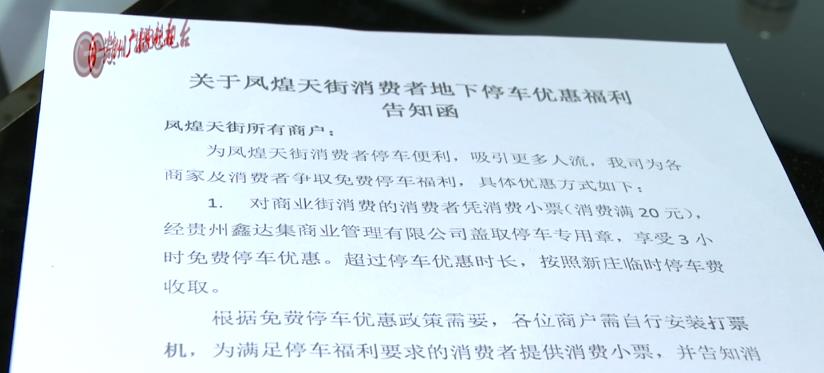 贵州广播电视台
关于凤煌天街消费者地下停车优惠福利
告知函
凤煌天街所有商户：
为凤煌天街消费者停车便利，吸引更多人流，我司为各
商家及消费者争取免费停车福利，具体优惠方式如下：
1. 对商业街消费的消费者凭消费小票（消费满 20 元），
经贵州鑫达集商业管理有限公司盖取停车专用章，享受 3 小
时免费停车优惠。超过停车优惠时长，按照新庄临时停车费
收取。
根据免费停车优惠政策需要，各位商户需自行安装打票
机，为满足停车福利要求的消费者提供消费小票，并告知消